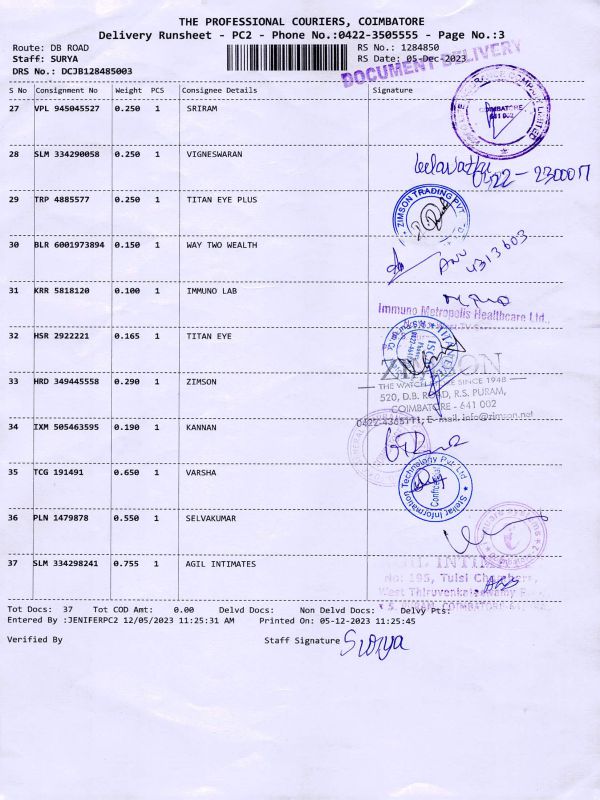 THE PROFESSIONAL COURIERS, COIMBATORE
Delivery Runsheet - PC2 - Phone No.:0422-3505555 - Page No.:3
Route: DB ROAD RS No.: 1284850
Staff: SURYA RS Date: 05-Dec-2023
DRS No.: DCJB128485003
DOCUMENT DELIVERY
S No Consignment No Weight PCS Consignee Details Signature
27 VPL 945045527 0.250 1 SRIRAM
COIMBATORE
641 002
28 SLM 334290058 0.250 1 VIGNESWARAN
Leelavathi
0422-230007
29 TRP 4885577 0.250 1 TITAN EYE PLUS
ZIMSON TRADING PVT.
30 BLR 6001973894 0.150 1 WAY TWO WEALTH
ANU
4313603
31 KRR 5818120 0.100 1 IMMUNO LAB
Immuno Metropolis Healthcare Ltd.,
32 HSR 2922221 0.165 1 TITAN EYE
ZIMSON
33 HRD 349445558 0.290 1 ZIMSON
THE WATCH STORE SINCE 1948
520, D.B. ROAD, R.S. PURAM,
COIMBATORE - 641 002
0422-4365111, E-mail. info@zimson.net
34 IXM 505463595 0.190 1 KANNAN
35 TCG 191491 0.650 1 VARSHA
Stellar Information Technology Pvt. Ltd
36 PLN 1479878 0.550 1 SELVAKUMAR
37 SLM 334298241 0.755 1 AGIL INTIMATES
AGIL INTIMATES
No: 195, Tulsi Chambers,
West Thiruvenkataswamy
R.S. PURAM, COIMBATORE-641 002.
Tot Docs: 37 Tot COD Amt: 0.00 Delvd Docs: Non Delvd Docs: Delvy Pts:
Entered By :JENIFERPC2 12/05/2023 11:25:31 AM Printed On: 05-12-2023 11:25:45
Verified By Staff Signature Surya